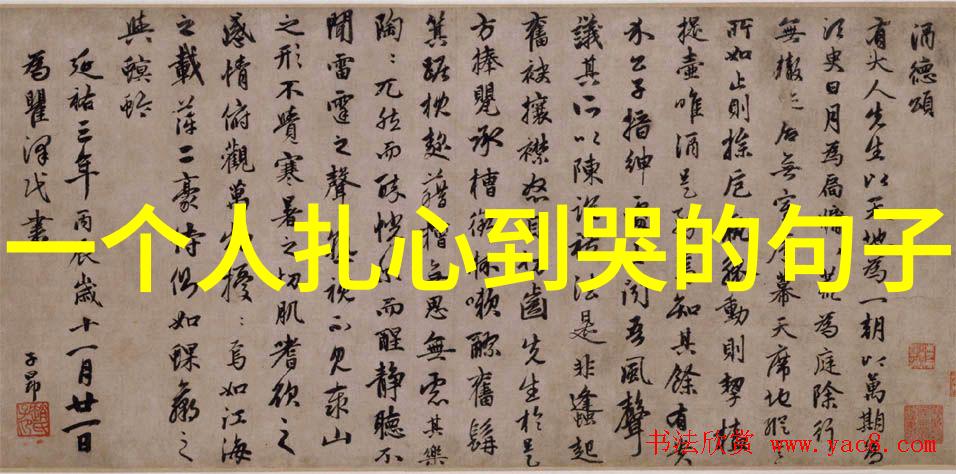 一个人扎心到哭的句子
酒德頌
有大人先生以天地為一朝以萬期為
須臾日月為扃牖八荒為庭除行
無轍跡居無室廬幕天席地縱意
所如止則操卮執觚動則挈榼
提壺唯酒是務焉知其餘有貴
介公子搢紳處士聞吾風聲
議其所以陳說禮法是非蠭起
奮袂攘襟怒目切齒先生於是
方捧甖承槽銜杯漱醪奮髯
箕踞枕麴藉糟無思無慮其樂
陶〻兀然而醉恍爾而醒靜聽不
聞雷霆之聲熟視不見泰山
之形不覺寒暑之切肌嗜欲之
感情俯觀萬物擾〻焉如江海
之載萍二豪侍側如蜾蠃之
與螟蛉
延祐三年丙辰歲十一月廿一日
為瞿澤民書
子昂
书法欣赏 www.yac8.com